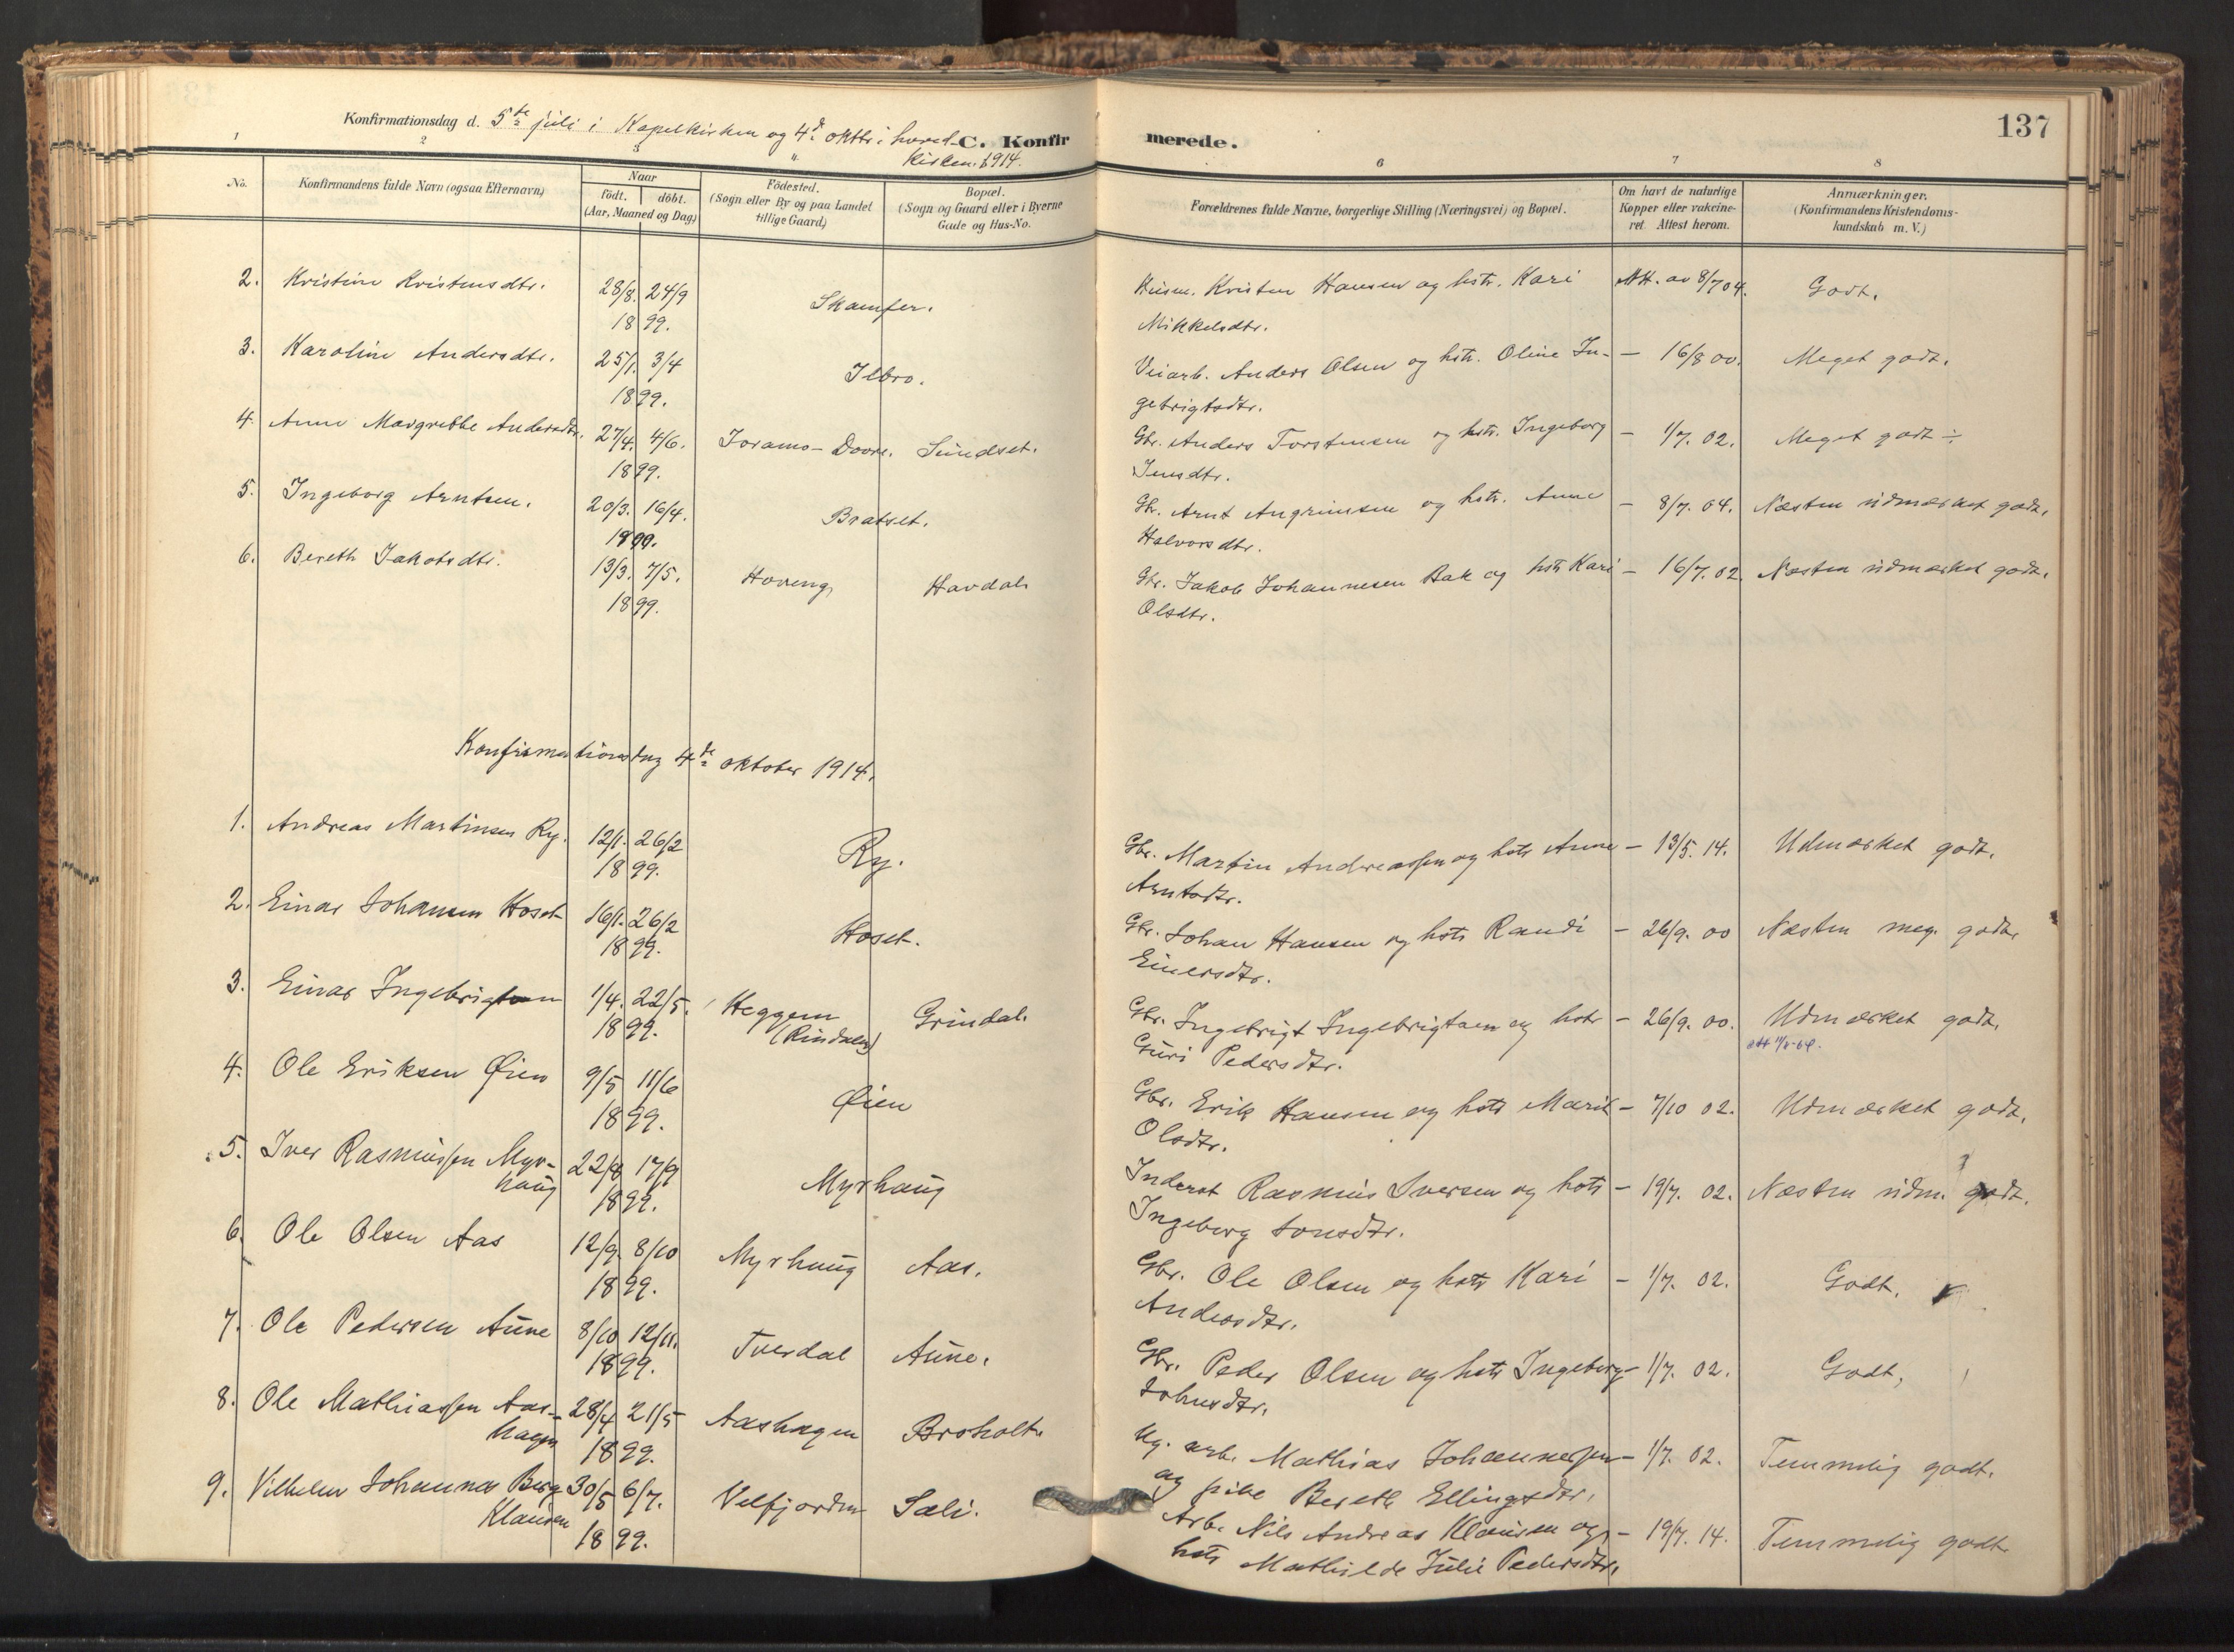 137
Konfirmationsdag d. 5te juli i Kapelkirken og 4de oktbr. i hoved-
kirken 1914.
C. Konfirmerede.
1 2 3 4 6 7 8
No.
Konfirmandens fulde Navn (ogsaa Efternavn)
Naar
født. døbt.
(Aar, Maaned og Dag)
Födested.
(Sogn eller By og paa Landet
tillige Gaard)
Bopæl.
(Sogn og Gaard eller i Byerne
Gade og Hus-No.
Forældrenes fulde Navne, borgerlige Stilling (Næringsvei) og Bopæl.
Om havt de naturlige
Kopper eller vakcine-
ret. Attest herom.
Anmærkninger.
(Konfirmandens Kristendoms-
kundskab m. V.)
2. Kristine Kristensdtr. 28/8. 24/9 Skamfer. Husm. Kristen Hansen og hstr. Kari Att. av 8/7 04. Godt.
1899. Mikkelsdtr.
3. Karoline Andersdtr. 25/1. 3/4 Ilbro. Veiarb. Anders Olsen og hstr. Oline In- — 16/8 00. Meget godt.
1899. gebrigtsdtr.
4. Anne Margrethe Andersdtr. 27/4. 4/6. Joramo-Dovre. Sundset. Gbr. Anders Torstensen og hstr. Ingeborg — 1/7. 02. Meget godt ÷
1899. Jensdtr.
5. Ingeborg Arntsen. 20/3. 16/4. Bratset. Gbr. Arnt Angrimsen og hstr. Anne — 8/7. 04. Næsten udmærket godt.
1899. Halvorsdtr.
6. Bereth Jakobsdtr. 13/3. 7/5. Hoveng Havdal. Gbr. Jakob Johannesen Bak og hstr Kari — 16/7. 02. Næsten udmærket godt.
1899. Olsdtr.
Konfirmationsdag 4de oktober 1914.
1. Andreas Martinsen Ry. 12/1. 26/2 Ry. Gbr. Martin Andreassen og hstr Anne — 13/5. 14. Udmærket godt.
1899. Arntsdtr.
2. Einar Johansen Hoset 16/1. 26/2 Hoset. Gbr. Johan Hansen og hstr Randi — 26/9. 00 Næsten meg. godt.
1899. Einersdtr.
3. Einar Ingebrigtsen 1/4. 22/5. Heggem Grindal. Gbr. Ingebrigt Ingebrigtsen og hstr — 26/9. 00. Udmærket godt.
1899. (Rindalen) Guri Pedersdtr.
4. Ole Eriksen Øien 9/5 11/6 Øien Gbr. Erik Hansen og hstr Marit — 7/10 02. Udmærket godt.
1899. Olsdtr.
5. Iver Rasmussen Myr- 22/8 17/9 Myrhaug Inderst Rasmus Iversen og hstr — 19/7. 02. Næsten udm. godt.
haug 1899. Ingeborg Jonsdtr.
6. Ole Olsen Aas 12/9. 8/10 Myrhaug Aas. Gbr. Ole Olsen og hstr Kari — 1/7. 02. Godt.
1899. Andersdtr.
7. Ole Pedersen Aune 8/10 12/11. Tverdal Aune. Gbr. Peder Olsen og hstr Ingeborg — 1/7. 02. Godt.
1899. Johnsdtr.
8. Ole Mathiassen Aas- 28/4 21/5 Aashagen Broholt. Ug. arb. Mathias Johannessen — 1/7. 02. Temmelig godt.
hagen 1899. og pike Bereth Ellingsdtr.
9. Vilhelm Johannes Berg 30/5 6/7. Velfjorden Sæli. Arb. Nils Andreas Klausen og — 19/7. 14. Temmelig godt
Klausen 1899. hstr Mathilde Julie Pedersdtr.